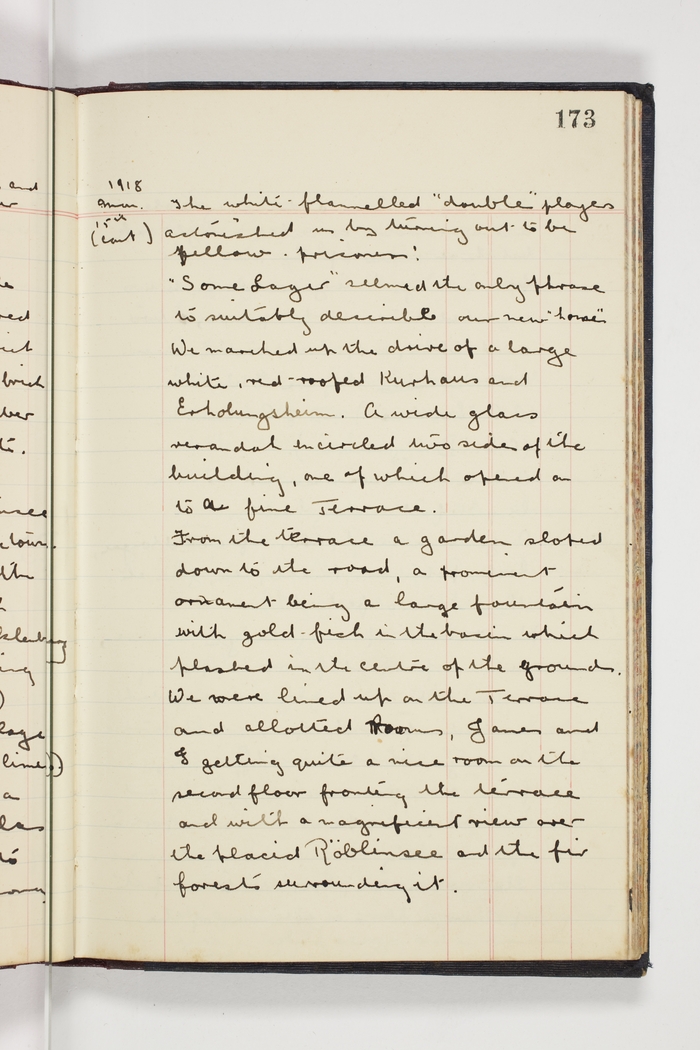 173
1918
Mon.
15th
(Cont)
The white-flannelled "double" players
astonished us by turning out to be
fellow-prisoners!
"Some Lager" seemed the only phrase
to suitably describe our new "home"
We marched up the drive of a large
white, red-roofed Kurhaus and
Erholungsheim. A wide glass
verandah encircled two sides of the
building, one of which opened on
to a fine Terrace.
From the terrace a garden sloped
down to the road, a prominent
ornament being a large fountain
with gold-fish in the basin which
plashed in the centre of the grounds.
We were lined up on the Terrace
and allotted Rooms, James and
I getting quite a nice room on the
second floor fronting the terrace
and with a magnificent view over
the placid Röblinsee and the fir
forests surrounding it.